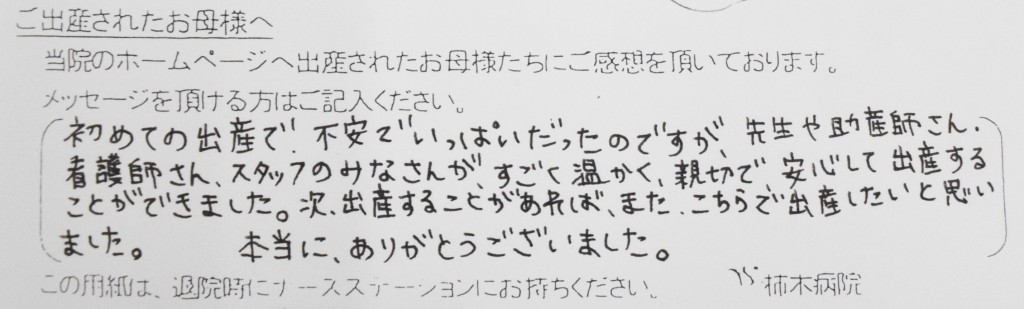 ご出産されたお母様へ
当院のホームページへ出産されたお母様たちにご感想を頂いております。
メッセージを頂ける方はご記入ください。
初めての出産で、不安でいっぱいだったのですが、先生や助産師さん、
看護師さん、スタッフのみなさんが、すごく温かく、親切で、安心して出産する
ことができました。次、出産することがあれば、また、こちらで出産したいと思い
ました。 本当に、ありがとうございました。
この用紙は、退院時にナースステーションにお持ちください。 柿木病院